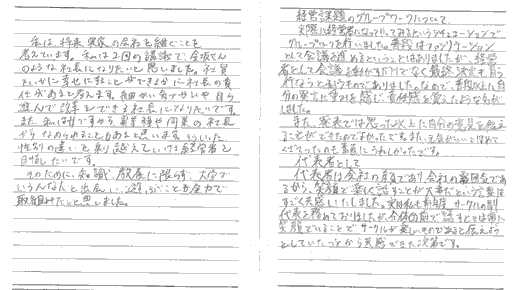 私は将来実家の会社を継ぐことを
考えています。私は2回の講義で金坂さん
のような社長になりたいと思いました。社員
といかに幸せに働くことができるかに社長の責
任があると考えます。細かい気づかいや自ら
進んで改革もできる社長になりたいです。
また私は女ですから異業種や同業の社長
からなめられることもあると思います。そういった
性別の違いを乗り越えていける経営者を
目指したいです。
そのために知識、飲食に限らず、大学で
いろんな人と出会い、遊ぶことも全力で
取り組みたいと思いました。
経営課題のグループワークについて
実際に経営者になったつもりでみるというシチュエーションで
グループワークを行いました。普段はファシリテーション
として会議を進めるということはありましたが、経営
者として会議を動かすだけでなく最終決定も自ら
行なうというものでありました。なので、普段以上に自
分の発言に重みを感じ、責任感を覚えたような気が
しました。
また、授業では思った以上に自分の意見を伝える
ことができたのでよかったです。また、元気がいいとほめて
くださったのも素直にうれしかったです。
代表者として
代表者は会社の顔であり、会社の雰囲気であ
るから、笑顔で楽しく話すことが大事だという言葉は
すごく共感いたしました。実は私も前年度サークルの副
代表を務めておりましたが、全体の前で話すときは常に
笑顔でいることでサークルが楽しいものであると伝えよう
としていたことから共感できた次第です。